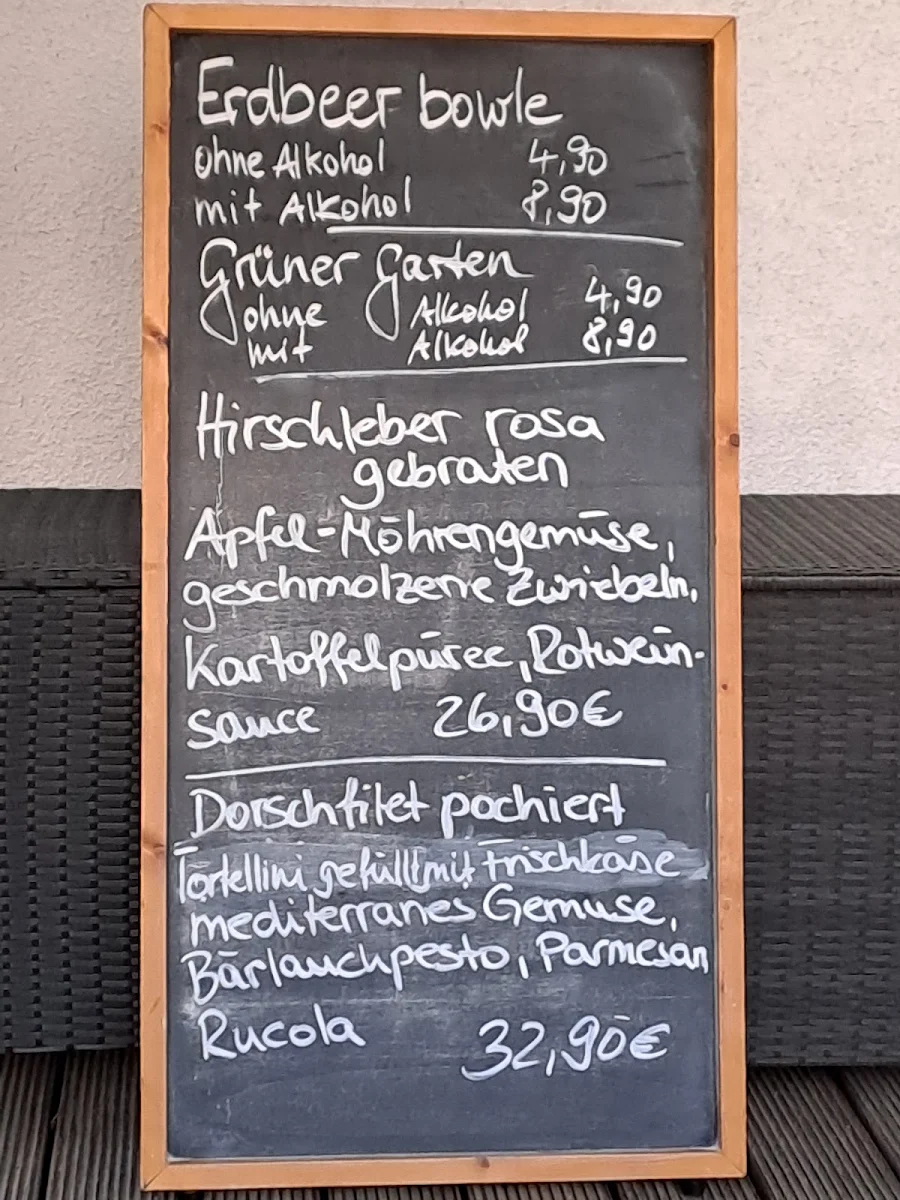 Erdbeer bowle
ohne Alkohol 4,90
mit Alkohol 8,90
Grüner Garten
ohne Alkohol 4,90
mit Alkohol 8,90
Hirschleber rosa
gebraten
Apfel-Möhrengemüse,
geschmolzene Zwiebeln,
Kartoffelpüree, Rotwein-
sauce 26,90€
Dorschfilet pochiert
Tortellini gefüllt mit Frischkäse
mediterranes Gemüse,
Bärlauchpesto, Parmesan
Rucola 32,90€